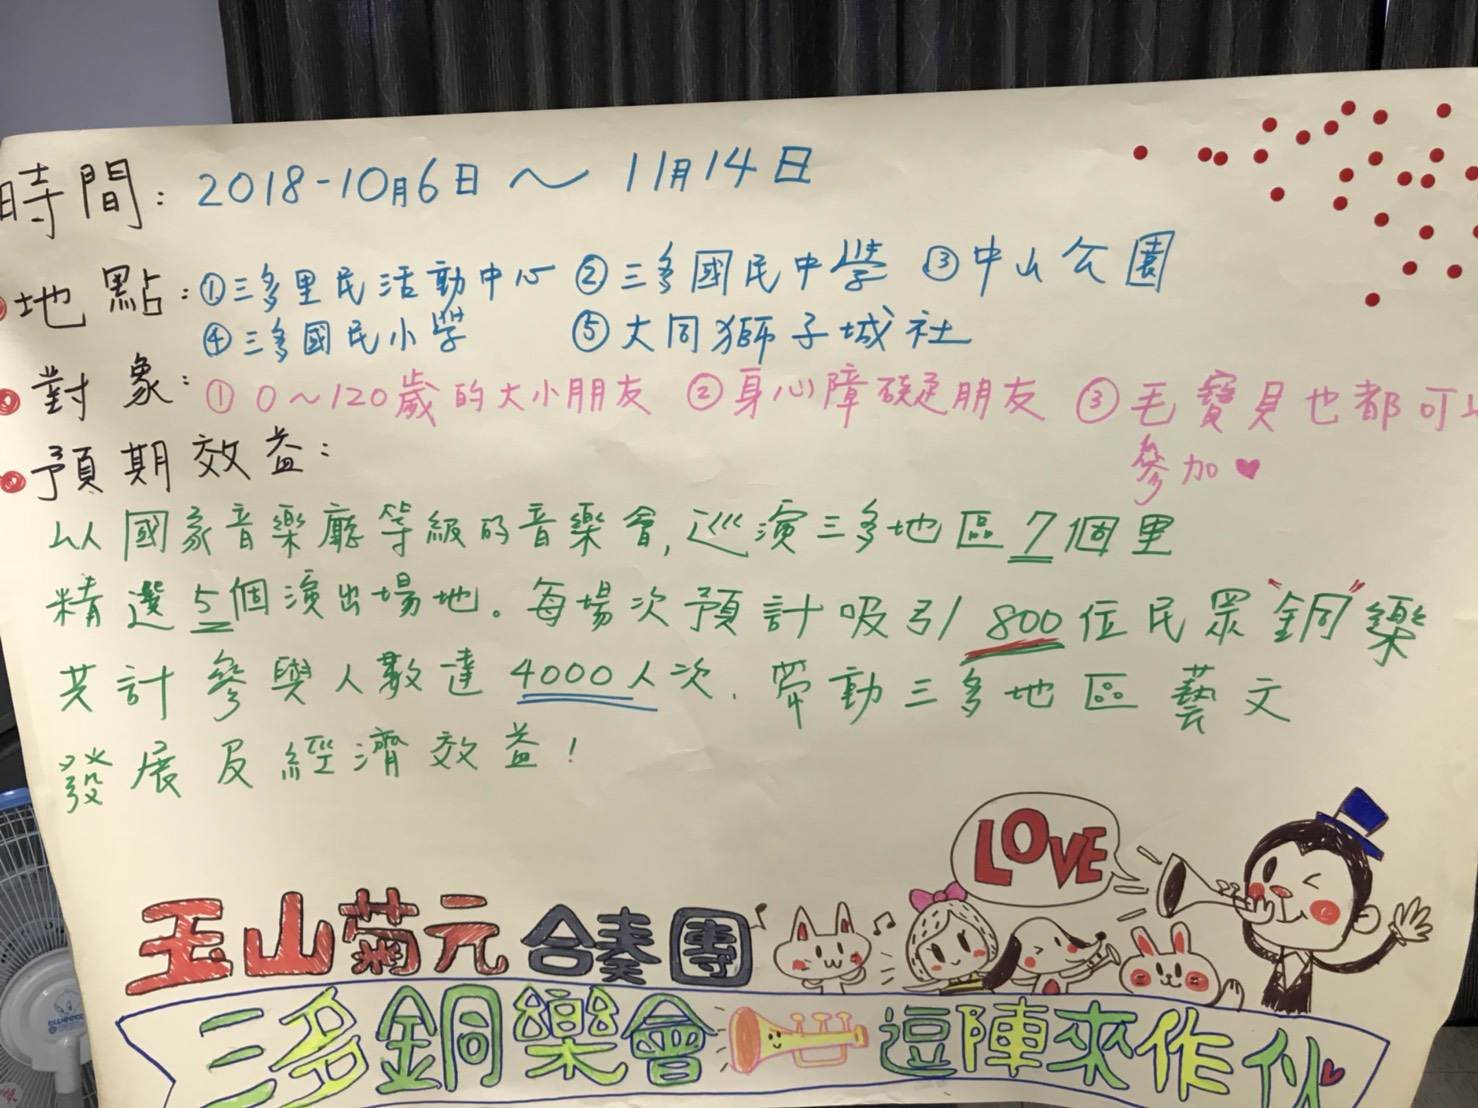 時間：2018-10月6日～11月14日
地點：①三多里民活動中心 ②三多國民中學 ③中山公園
④三多國民小學 ⑤大同獅子城社
對象：①0～120歲的大小朋友 ②身心障礙朋友 ③毛寶貝也都可以
參加♥
預期效益：
以國家音樂廳等級的音樂會,巡演三多地區7個里
精選5個演出場地。每場次預計吸引800位民眾"銅"樂
共計參與人數達4000人次、帶動三多地區藝文
發展及經濟效益！
LOVE
玉山菊元合奏團
三多銅樂會 逗陣來作伙